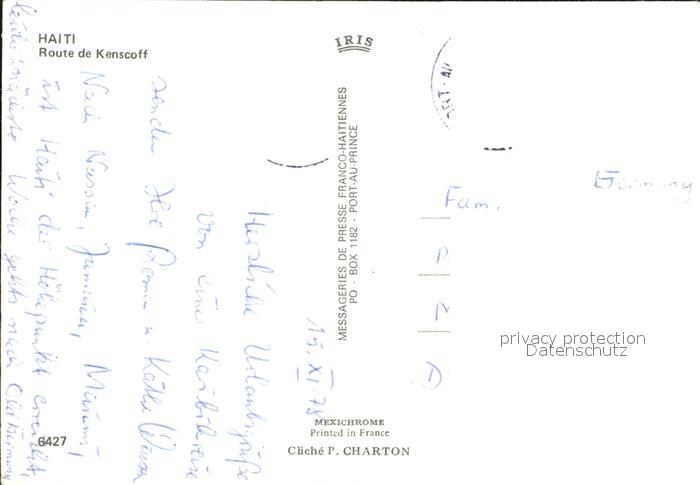 HAITI
Route de Kenscoff
IRIS
MESSAGERIES DE PRESSE FRANCO-HAITIENNES
PO - BOX 1182 - PORT-AU-PRINCE
15. XI. 78
Herzliche Urlaubsgrüße
von einer Karibikreise
senden Ihre u. Käthe
Nach Nassau, Jamaica, Miami,
ist Haiti der Höhepunkt erreicht,
leider nächste Woche gehts nach Old Germany
Germany
Fam.
P
Z
A
privacy protection
Datenschutz
6427
MEXICHROME
Printed in France
Cliché P. CHARTON